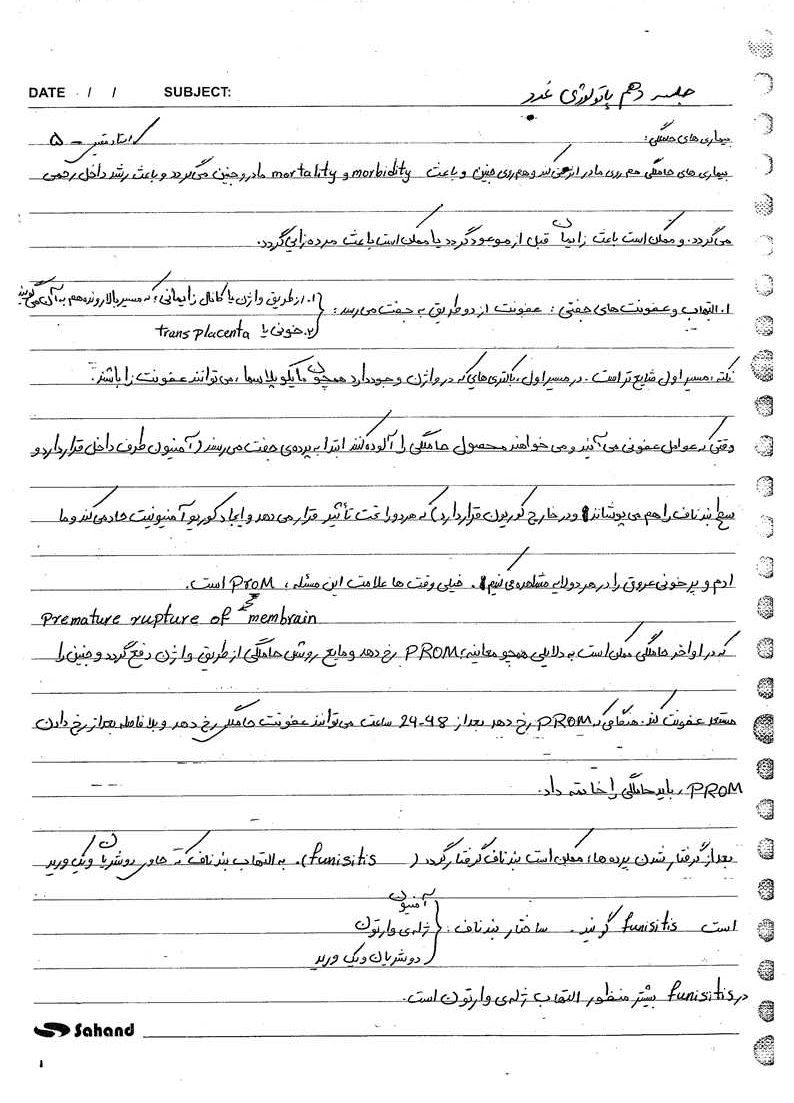 DATE / / SUBJECT:
جلسه دهم پاتولوژی غدد
بیماری های حاملگی: استاد مقیمی - ۵
بیماری های حاملگی هم روی مادر اثر می کند و هم روی جنین و باعث morbidity و mortality مادر و جنین می گردد و باعث رشد داخل رحمی
می گردد. و ممکن است باعث زایمان قبل از موعود گردد یا ممکن است باعث مرده زایی گردد.
۱. التهاب و عفونت های جفتی: عفونت از دو طریق به جفت می رسد: ۱. از طریق واژن یا کانال زایمانی، که مسیر بالارونده هم به آن می گویند
۲. خونی یا transplacenta
نکته: مسیر اول شایع تر است. در مسیر اول، باکتری هایی که در واژن وجود دارد همچون مایکوپلاسما، می توانند عفونت زا باشند.
وقتی که عوامل عفونی می آیند و می خواهند محصول حاملگی را آلوده کنند ابتدا به پرده ی جفت می رسند (آمنیون طرف داخل قرار دارد و
سطح بند ناف را هم می پوشاند و در خارج کوریون قرار دارد) که هر دو را تحت تأثیر قرار می دهد و ایجاد کوریو آمنیونیت حاد می کند و ما
ادم و پرخونی عروق را در هر دو لایه مشاهده می کنیم. خیلی وقت ها علامت این مسئله، PROM است.
Premature rupture of membrain
که در اواخر حاملگی ممکن است به دلایلی همچو معاینه، PROM رخ دهد و مایع روشن حاملگی از طریق واژن دفع گردد و جنین را
مستعد عفونت کند. هنگامی که PROM رخ دهد بعد از 24-48 ساعت می توانند عفونت حاملگی رخ دهد و بلافاصله بعد از رخ دادن
PROM، باید حاملگی را خاتمه داد.
بعد از گرفتار شدن پرده ها، ممکن است بند ناف گرفتار گردد (funisitis). به التهاب بند ناف که حاوی دو شریان و یک ورید
است funisitis گویند. ساختار بند ناف: آمنیون
ژله ی وارتون
دو شریان و یک ورید
در funisitis بیشتر منظور التهاب ژله ی وارتون است.
Sahand
۱